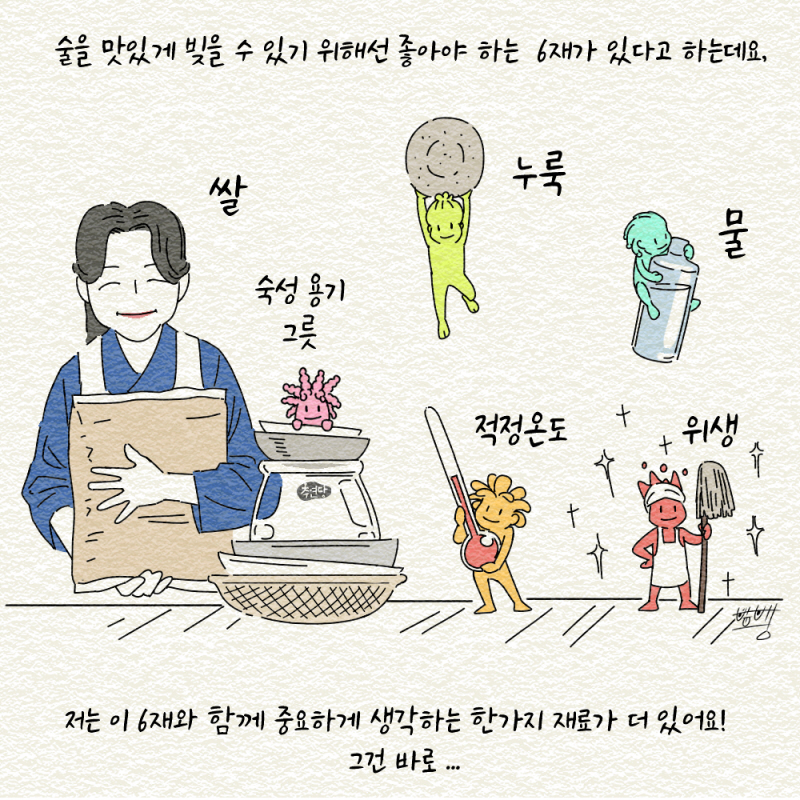 술을 맛있게 빚을 수 있기 위해선 좋아야 하는 6재가 있다고 하는데요,
쌀
누룩
물
숙성 용기
그릇
적정온도
위생
저는 이 6재와 함께 중요하게 생각하는 한가지 재료가 더 있어요!
그건 바로 ...